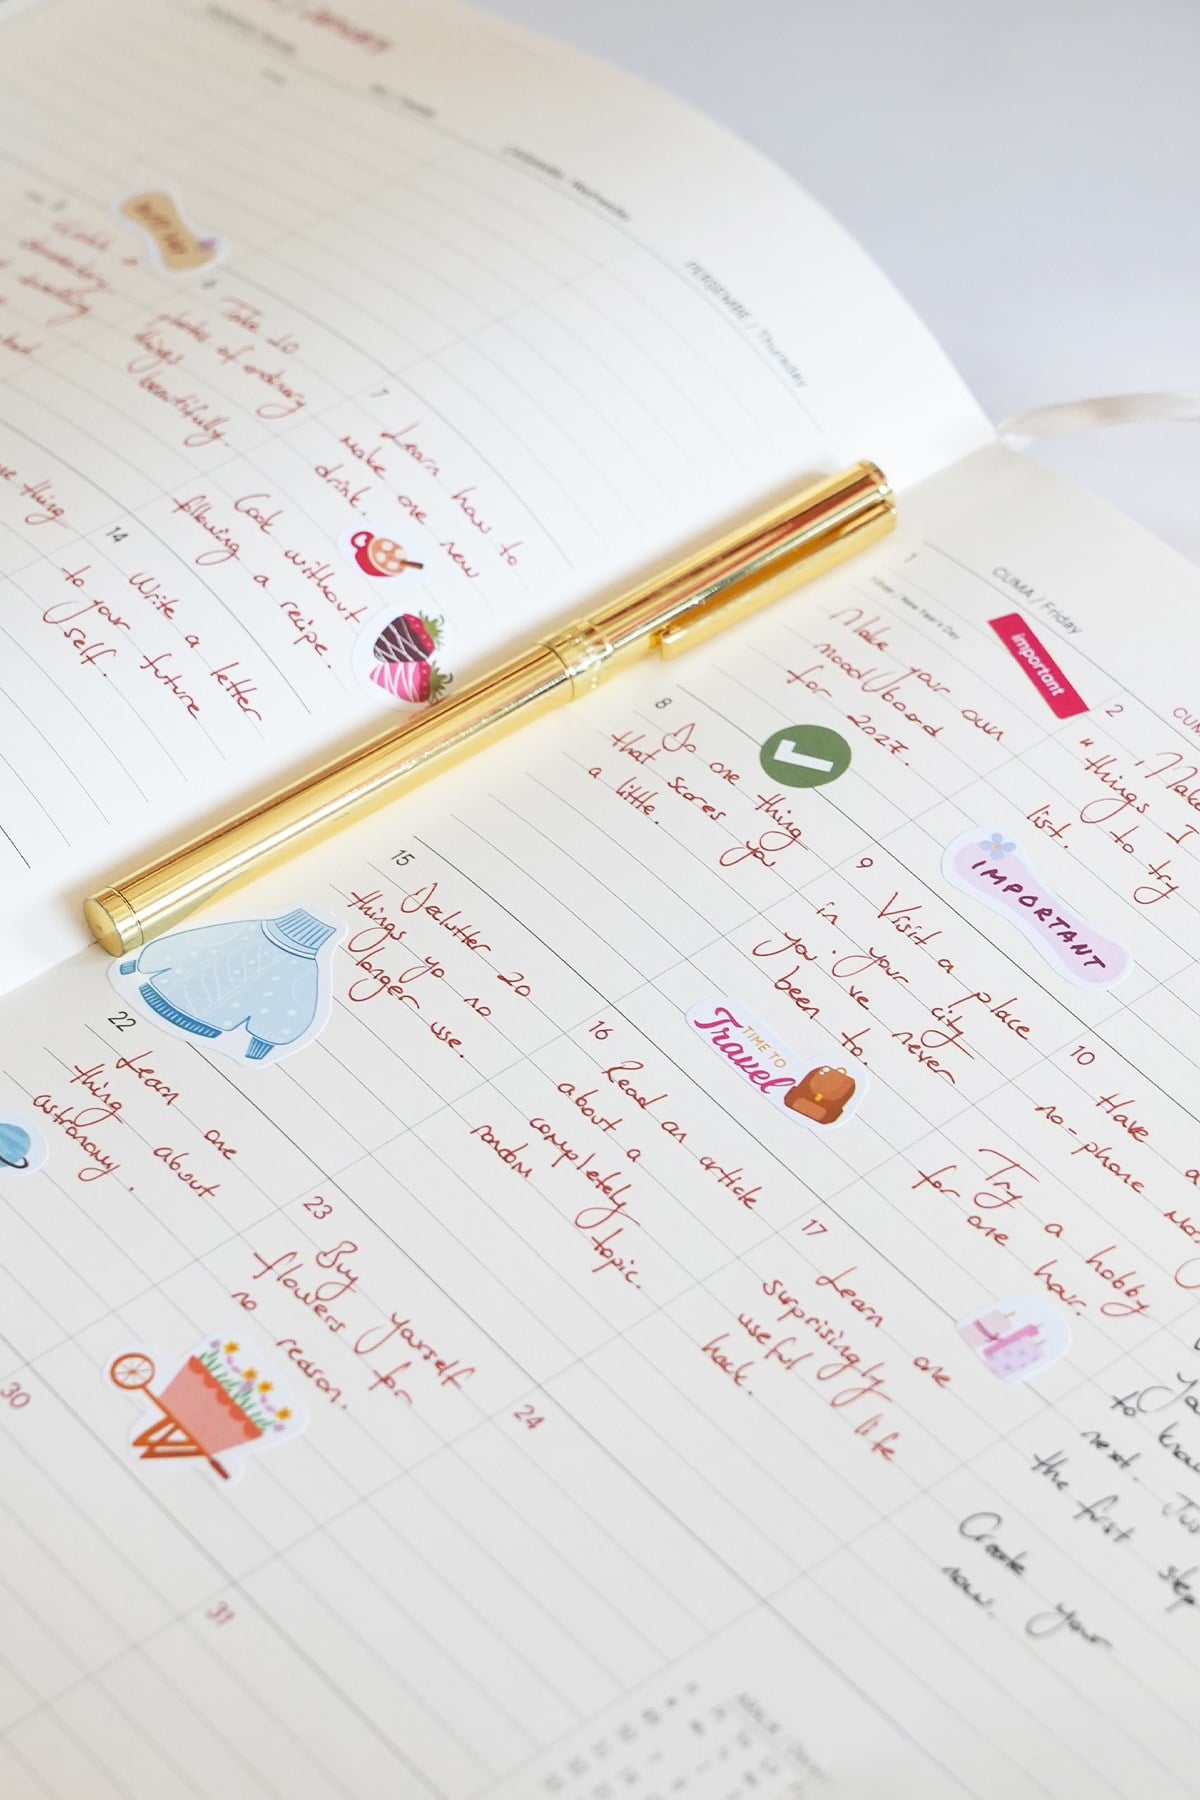 January
Wednesday
PERŞEMBE / Thursday
Take 10
photos of ordinary
things
beautifully.
7
Learn how to
make one new
drink.
thing
Cook without
fllowing a recipe.
14
Write a letter
to your future
self.
CUMA / Friday
1
New Year's Day
important
Make your own
mood/board
for 2027.
2
CUM
"Make
"things I
to try
list.
8
Do one thing
that scares you
a little.
9
IMPORTANT
Visit a place
in your city
you've never
been to.
TIME TO
Travel
10
Have a
no-phone
15
Declutter 20
things yo no
longer use.
16
Read an article
about a
completely
random
topic.
Try a hobby
for one
hour.
17
Learn one
surprisingly
useful life
hack.
22
Learn one
thing about
astronomy.
23
Buy yourself
flowers for
no reason.
24
30
31
to know
next.
the first step
now.
Create your